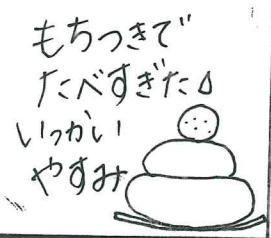 もちつきで
たべすぎた
いっかい
やすみ